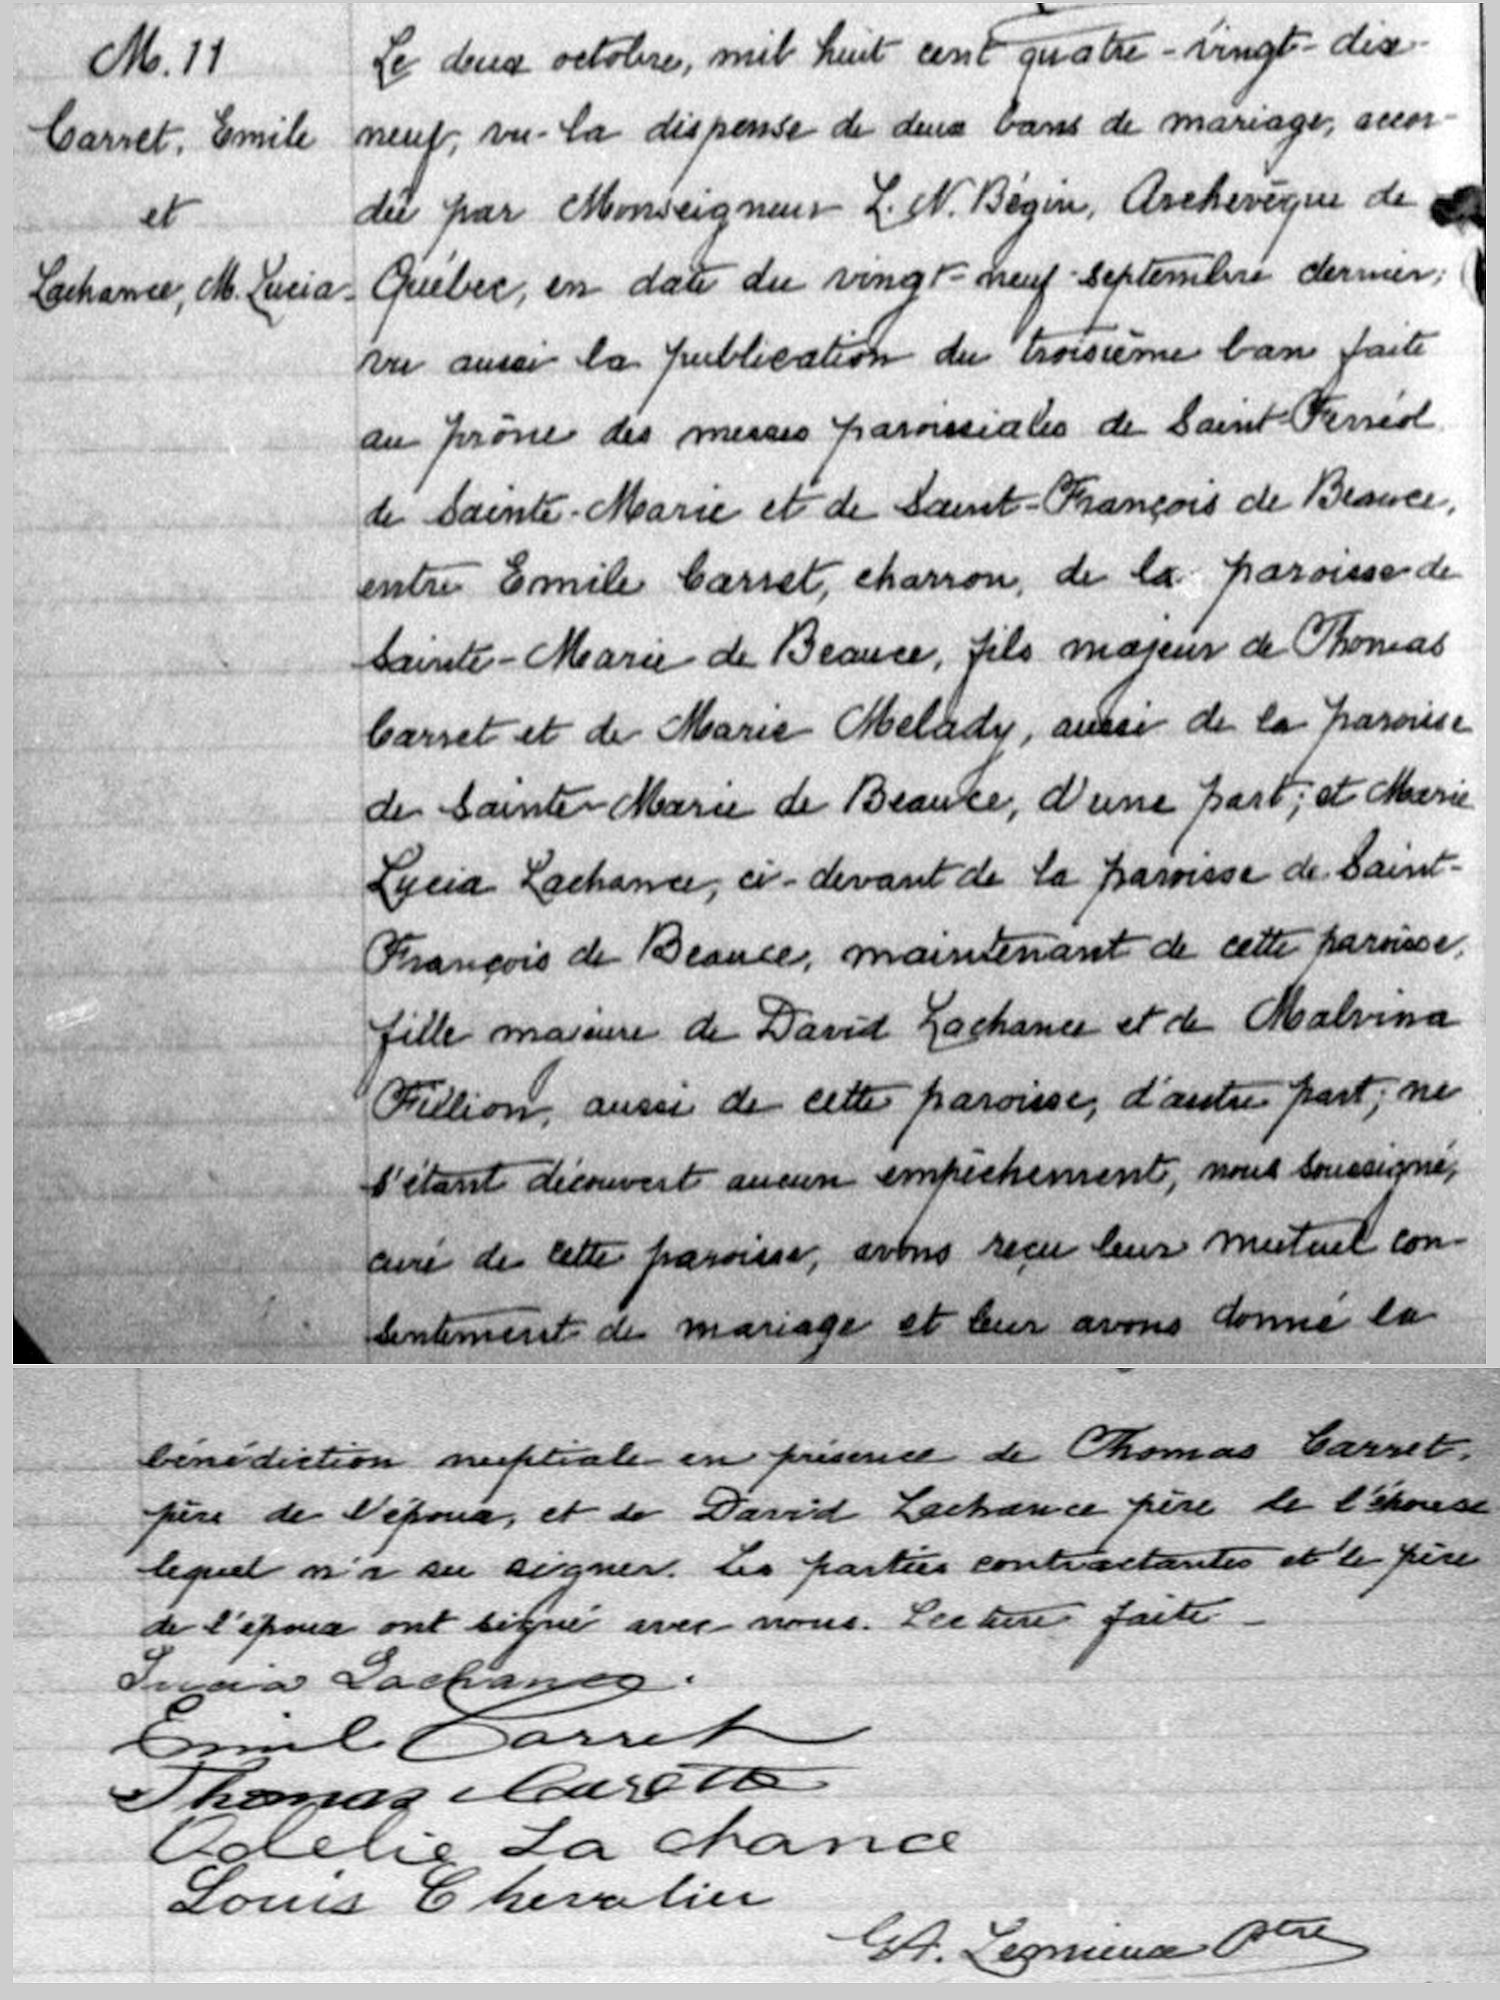 M. 11
Carret, Emile
et
Lachance, M. Lucia
Le deux octobre, mil huit cent quatre-vingt-dix-
neuf, vu la dispense de deux bans de mariage, accor-
dée par Monseigneur L. N. Bégin, Archevêque de
Québec, en date du vingt-neuf septembre dernier;
vu aussi la publication du troisième ban faite
au prône des messes paroissiales de Saint-Ferréol
de Sainte-Marie et de Saint-François de Beauce,
entre Emile Carret, charron, de la paroisse de
Sainte-Marie de Beauce, fils majeur de Thomas
Carret et de Marie Melady, aussi de la paroisse
de Sainte-Marie de Beauce, d'une part; et Marie
Lucia Lachance, ci-devant de la paroisse de Saint-
François de Beauce, maintenant de cette paroisse,
fille majeure de David Lachance et de Malvina
Fillion, aussi de cette paroisse, d'autre part; ne
s'étant découvert aucun empêchement, nous soussigné,
curé de cette paroisse, avons reçu leur mutuel con-
sentement de mariage et leur avons donné la
bénédiction nuptiale en présence de Thomas Carret,
père de l'époux, et de David Lachance père de l'épouse
lequel n'a su signer. Les parties contractantes et le père
de l'époux ont signé avec nous. Lecture faite -
Lucia Lachance.
Emile Carret
Thomas Carette
Odelie La chance
Louis Chevalier
G. A. Lemieux Ptre